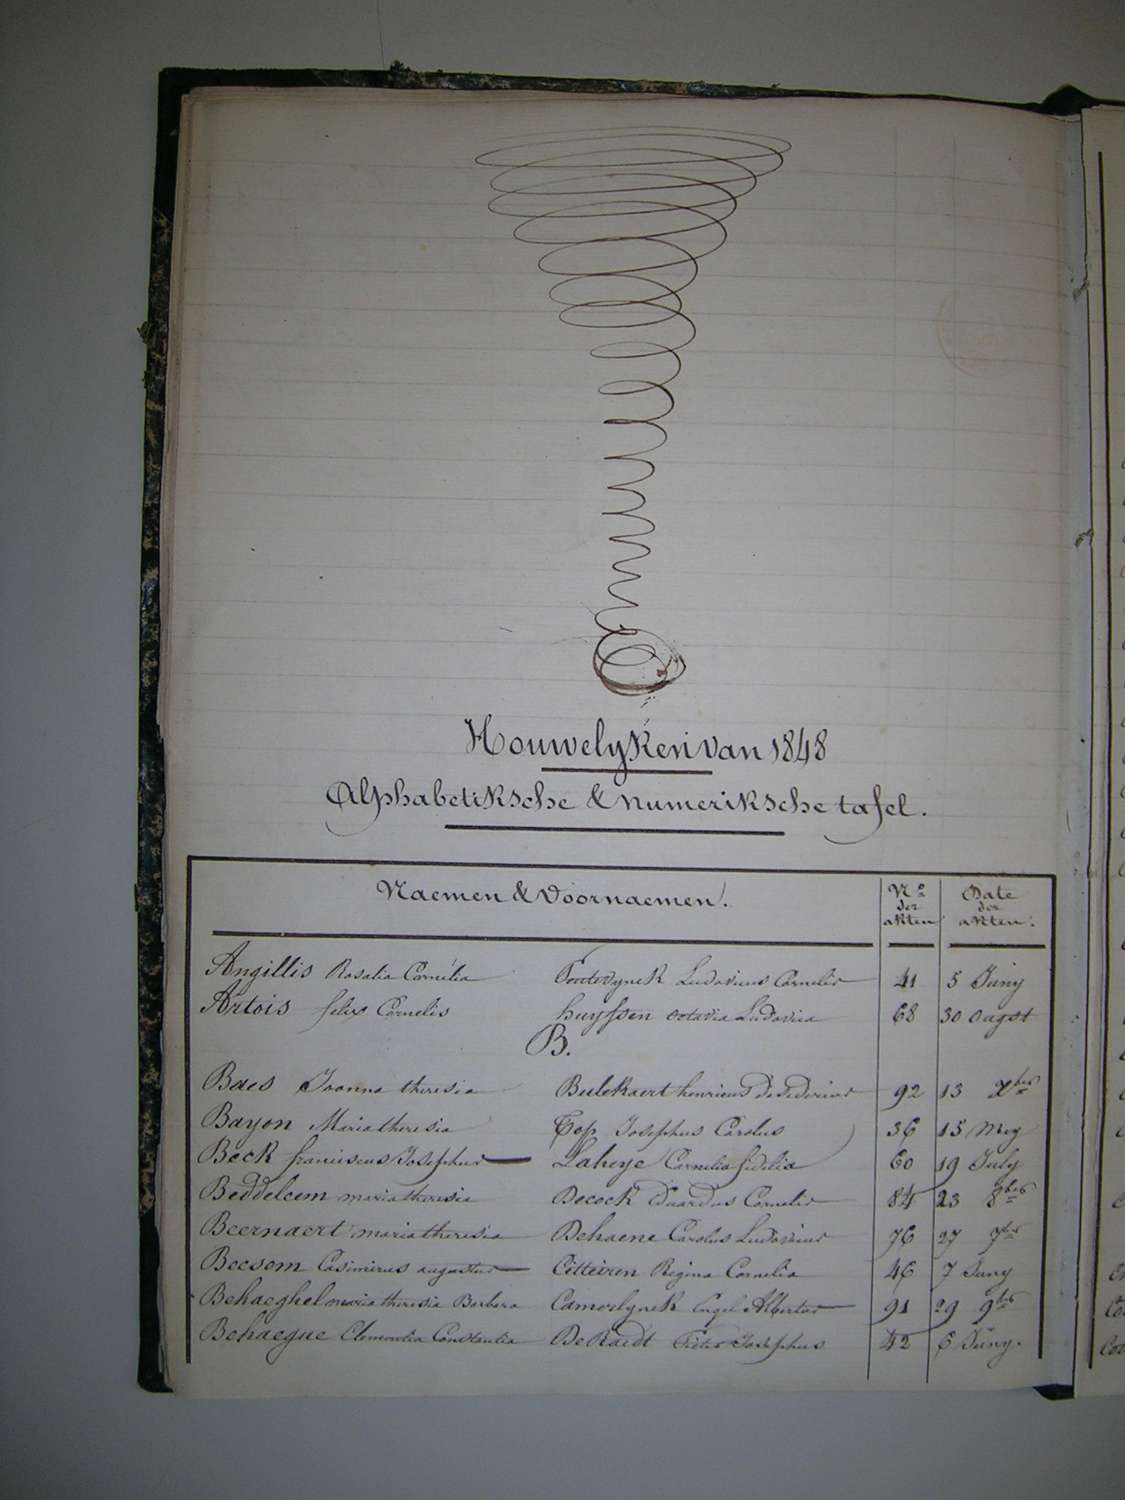 Houwelyken van 1848
Alphabetiksche & numeriksche tafel.
Naemen & Voornaemen. Nº der akten Date der akten.
Angillis Rosalia Cornélia Ludovicus Cornelis 41 5 Juny
Artois felix Cornelis huyssen octavia Ludovica 68 30 augst
B.
Baes Joanna theresia Beulekaert henricus desiderius 92 13 Xber
Bayon Maria theresia Top Josephus Carolus 36 15 Mey
Beck franciscus Josephus Lahoye Cornelia fidelia 60 19 July
Beddeleem maria theresia Decock Eduardus Cornelis 84 23 8ber
Beernaert maria theresia Dehaene Carolus Ludovicus 76 27 7ber
Beesem Casimirus augustus Citteiren Regina Cornelia 46 7 Juny
Behaeghel maria theresia Barbara Camerlynck Engel Albertus 91 29 9ber
Behaegue Clementia Constantia DeRaedt Pieter Josephus 42 6 Juny.